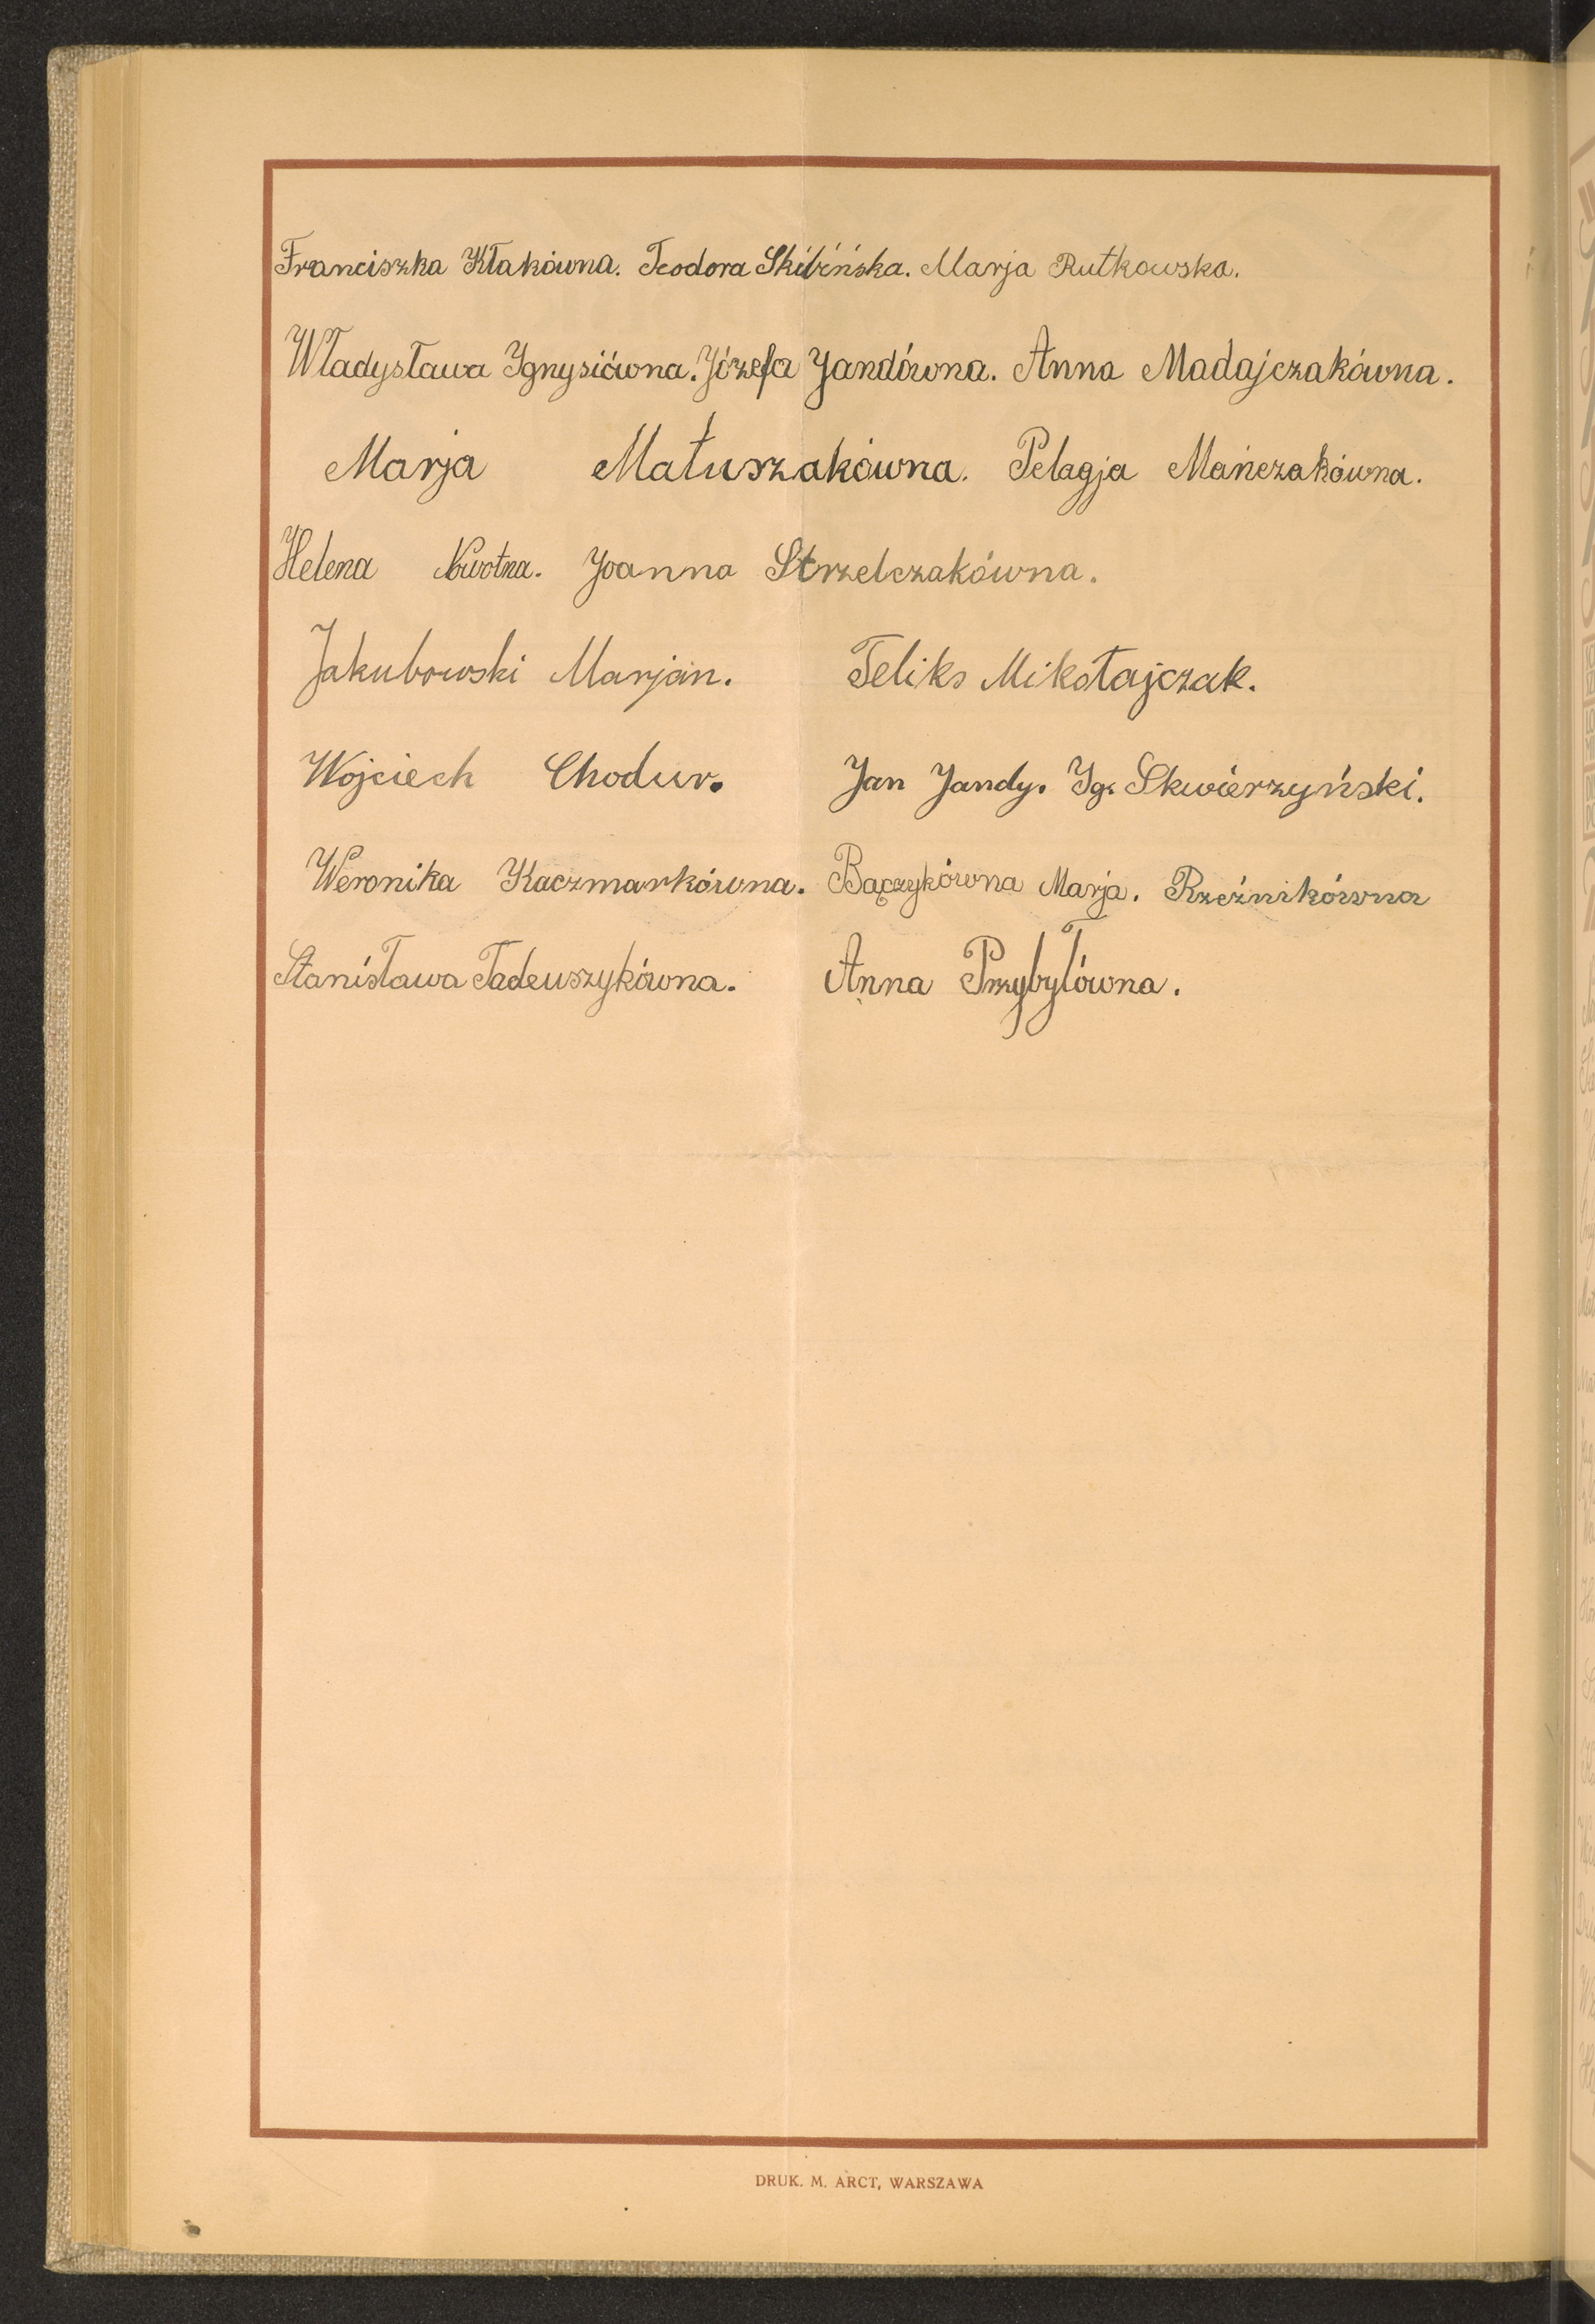 Franciszka Kłakówna. Teodora Skibińska. Marja Rutkowska.
Władysława Ignysiówna. Józefa Jandówna. Anna Madajczakówna.
Marja Matuszakówna. Pelagja Mańczakówna.
Helena Nowotna. Joanna Strzelczakówna.
Jakubowski Marjan. Feliks Mikołajczak.
Wojciech Chodur. Jan Jandy. Ig. Skwierzyński.
Weronika Kaczmarkówna. Bączykówna Marja. Rzeźnikówna
Stanisława Tadeuszykówna. Anna Przybyłówna.
DRUK. M. ARCT, WARSZAWA